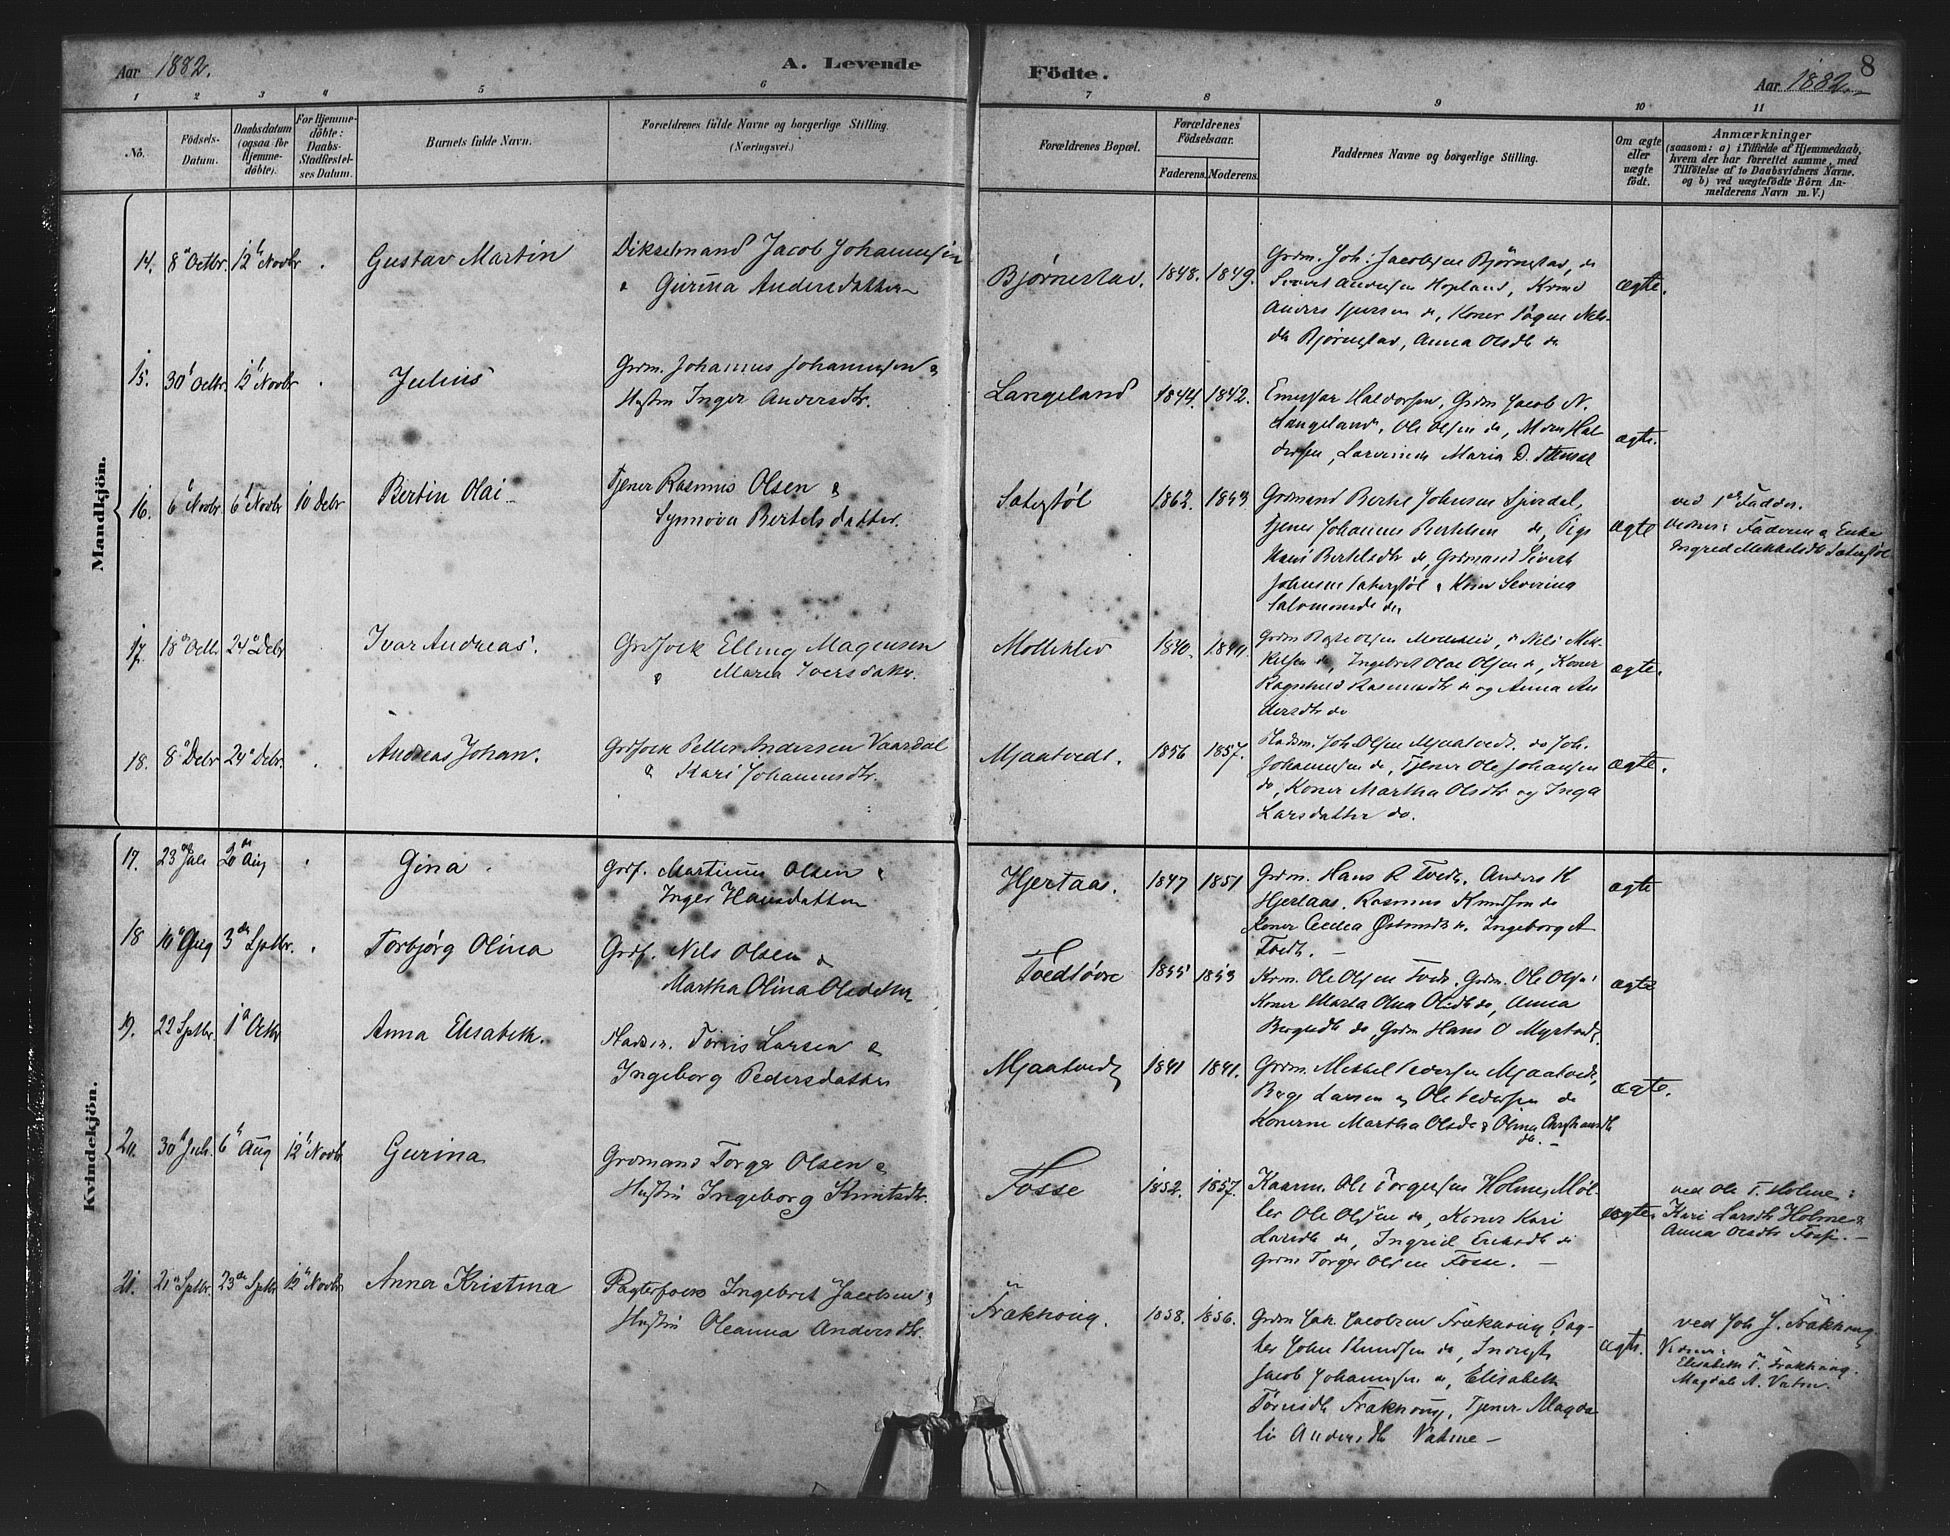 Aar 1882.
A. Levende
Födte.
Aar 1882
8
1 2 3 4 5 6 7 8 9 10 11
No.
Födsels-
Datum.
Daabsdatum
(ogsaa for
Hjemme-
döbte).
For Hjemme-
döbte:
Daabs-
Stadfæstel-
ses Datum.
Barnets fulde Navn.
Forældrenes fulde Navne og borgerlige Stilling.
(Næringsvei.)
Forældrenes Bopæl.
Forældrenes
Födselsaar.
Faderens. Moderens.
Faddernes Navne og borgerlige Stilling.
Om ægte
eller
uægte
födt.
Anmærkninger
(saasom: a) i Tilfælde af Hjemmedaab,
hvem der har forrettet samme, med
Tilföielse af to Daabsvidners Navne.
og b) ved uægtefödte Börn An-
melderens Navn m. V.)
Mandkjön.
14. 8 Octbr. 12 Novbr Gustav Martin
Jacob Johannesen
& Gurina Andersdatter
Bjørnestad. 1848. 1849. ægte.
Grdm. Joh: Jacobsen Bjørnestad, do
Sivert Andersen Hopland, Krmd
Anders do, Koner Nels-
dtr Bjørnestad, Anna Olsdtr do
15. 30 Octbr. 12 Novbr Julius
Grdm. Johannes Johannesen &
Hustru Inger Andersdtr.
Langeland 1844. 1842. ægte.
Haldorsen, Grdm Jacob N.
Langeland, Ole Olsen do, Hal
dorsen, Maria D.
16. 6 Novbr 6 Novbr 10 Debr Bertin Olai
Tjener Rasmus Olsen &
Synnøva Bertelsdatter.
Saterstøl 1862. 1853 ægte
Grdmand Bertel Johnsen
Tjener Johannes Bertelsen do, Pige
Bertelsdtr do, Grdmand Sivert
Johnsen Saterstøl & Kone Severina
Salomonsdtr do
ved 1ste Fadder.
Vidner: Faderen & Enke
Ingred Mikkelsdtr Saterstøl
17. 18 Octbr. 24 Debr Ivar Andreas.
Grdfolk Elling Magnesen
& Maria Iversdatter.
Molleklev 1840. 1840. ægte.
Grdm Olsen Molleklev, do Nels Mik-
kelsen do, Ingebret Olai Olsen do, Koner
Ragnhild Rasmusdtr do og Anna An
dersdtr do
18. 8 Debr 24 Debr. Andreas Johan.
Grdfolk Petter Andersen Vaardal
& Kari Johannesdtr.
Mjaatvedt. 1856 1857. ægte.
Pladsm. Joh. Olsen Mjaatvedt. do Joh.
Johannesen do, Tjener Ole Johansen
do, Koner Martha Olsdtr og Inga
Larsdatter do.
Kvindekjön.
17. 23 Juli 20 Aug Gina.
Grdf. Martinus Olsen &
Inger Hansdatter
Hjertaas. 1847 1851 ægte
Grdm. Hans R Tvedt. Anders K
Hjertaas. Rasmus Knudsen do
Koner Cecilia do, Ingeborg A
Tvedt.
18 10 Aug 3 Septbr. Torbjørg Olina
Grdf. Nils Olsen &
Martha Olina Olsdatter
Tvedtøvre 1855 1853 ægte
Krm. Ole Olsen Tvedt. Grdm. Ole Olsen
Koner Marta Olina Olsdtr do, Anna
do, Grdm Hans O Myrtvedt.
19. 22 Septbr. 1 Octbr Anna Elisabeth.
Pladsm. Larsen &
Ingeborg Pedersdatter
Mjaatvedt 1841 1841. ægte.
Grdm. Mikkel Iversen Mjaatvedt,
Larsen og Ole Pedersen do
Konerne Martha Olsdtr & Olina Christiansdtr
do. —
20. 30 Juli. 6 Aug 12 Novbr Gurina
Grdmand Torger Olsen &
Hustru Ingeborg Knutsdtr.
Fosse 1852. 1857. ægte.
Kaarm. Ole Torgersen Holme, Møl-
ler Ole Olsen do, Koner Kari
Larsdtr do, Ingrid do
Grdm Torger Olsen Fosse. —
ved Ole T. Holme:
Kari Larsdtr Holme &
Anna Olsdtr Fosse. —
21. 21 Septbr. 23de Septbr 12 Novbr Anna Kristina
Pagterfolk Ingebret Jacobsen &
Hustru Oleanna Andersdtr.
Frækhaug. 1858. 1856. ægte.
Grdm Joh Jacobsen Frækhaug, Pag-
ter John Knudsen do,
Jacob Johannesen do, Elisabeth
Frækhaug, Tjener Magda
li Andersdtr Vatne —
ved Joh J. Frækhaug.
Vidner:
Elisabeth T. Frækhaug.
Magdali A. Vatne.